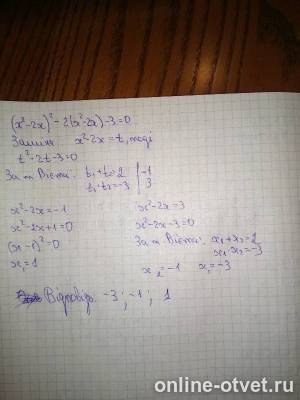 (x²-2x)²-2(x²-2x)-3=0
Заміна x²-2x=t, тоді
t²-2t-3=0
За т. Вієта: t₁+t₂=2 | -1
t₁·t₂=-3 | 3
x²-2x=-1
x²-2x+1=0
(x-1)²=0
x₁=1
x²-2x=3
x²-2x-3=0
За т. Вієта: x₁+x₂=2
x₁·x₂=-3
x₂=-1 x₁=-3
Відповідь: -3; -1; 1
online-otvet.ru